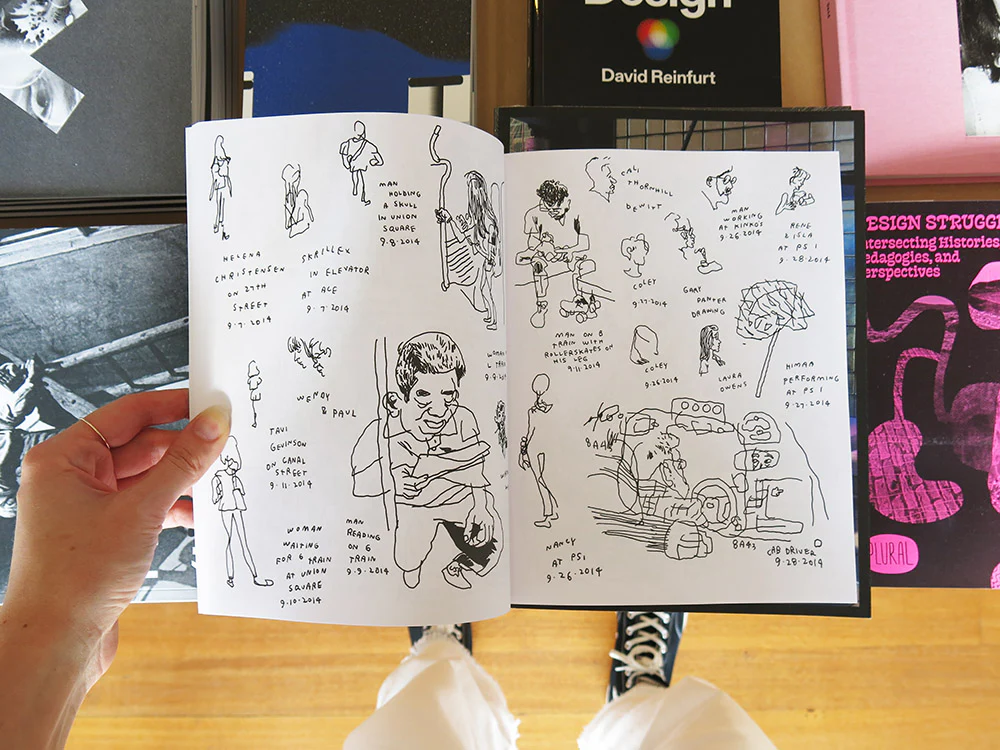 Design
David Reinfurt
MAN
HOLDING
A SKULL
IN UNION
SQUARE
9.8.2014
HELENA
CHRISTENSEN
ON 27TH
STREET
9.7.2014
SKRILLEX
IN ELEVATOR
AT ACE
9.7.2014
WENDY
& PAUL
TAVI
GEVINSON
ON CANAL
STREET
9.11.2014
WOMAN
WAITING
FOR 6 TRAIN
AT UNION
SQUARE
9.10.2014
MAN
READING
ON 6
TRAIN
9.9.2014
CALI
THORNHILL
DEWITT
MAN
WORKING
AT KINKOS
9.26.2014
RENE
& ISLA
AT PS1
9.28.2014
COLEY
9.27.2014
GARY
PANTER
DRAWING
MAN ON B
TRAIN WITH
ROLLERSKATES ON
HIS LEG
9.11.2014
COLEY
9.26.2014
LAURA
OWENS
HIMAN
PERFORMING
AT PS1
9.27.2014
8A43
NANCY
AT PS1
9.26.2014
8A43
CAB DRIVER
9.28.2014
DESIGN STRUGG
ntersecting Histories
edagogies, and
erspectives
PLURAL